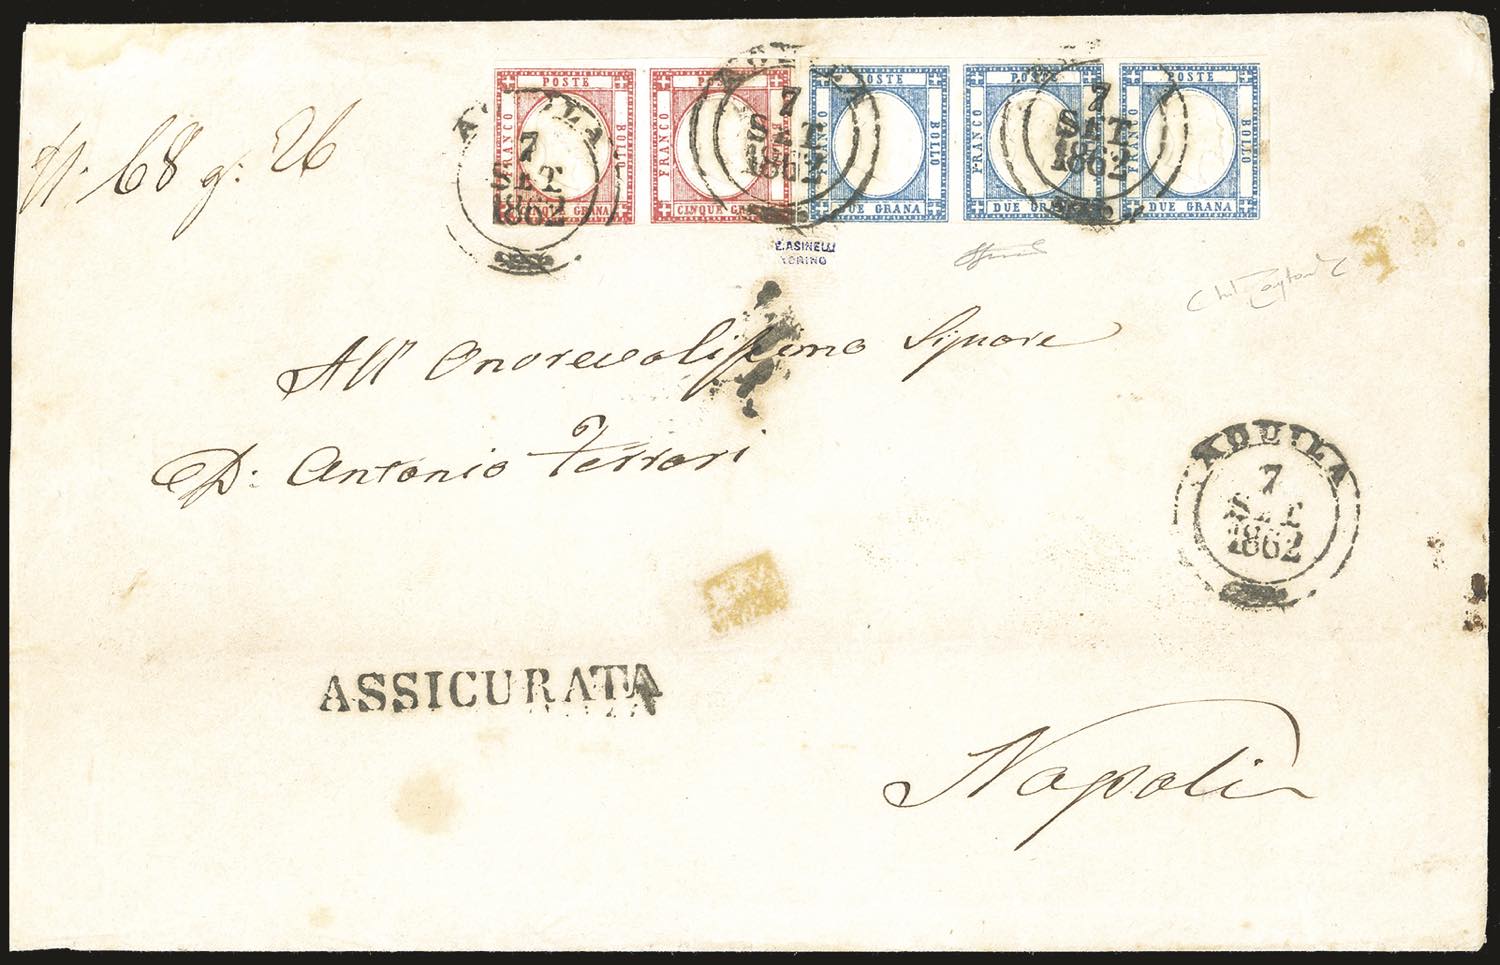 N. 68 g: 26
POSTE FRANCO BOLLO GRANA
POSTE FRANCO BOLLO CINQUE GRANA
POSTE BOLLO DUE GRANA
POSTE FRANCO BOLLO DUE GRANA
POSTE FRANCO BOLLO DUE GRANA
AQUILA
7
SET
1862
AQUILA
7
SET
1862
AQUILA
7
SET
1862
E. ASINELLI
TORINO
All' Onorevolissimo Signore
D: Antonio Ferrari
AQUILA
7
SET
1862
ASSICURATA
Napoli